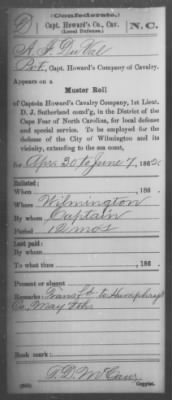 (Confederate.)
D
Capt. Howard's Co., Cav.
(Local Defense.)
N.C.
A. J. DuVal
Pvt, Capt. Howard's Company of Cavalry.
Appears on a
Muster Roll
of Captain Howard's Cavalry Company, 1st Lieut.
D. J. Sutherland comd'g, in the District of the
Cape Fear of North Carolina, for local defense
and special service. To be employed for the
defense of the City of Wilmington and its
vicinity, extending to the sea coast,
for Apr. 30 to June 7, 186
Enlisted:
When , 186 .
Where Wilmington
By whom Captain
Period 12 mos
Last paid:
By whom
To what time , 186 .
Present or absent
Remarks: Transf'd to Humphrey
Co. May 8th
Book mark:
Copyist.